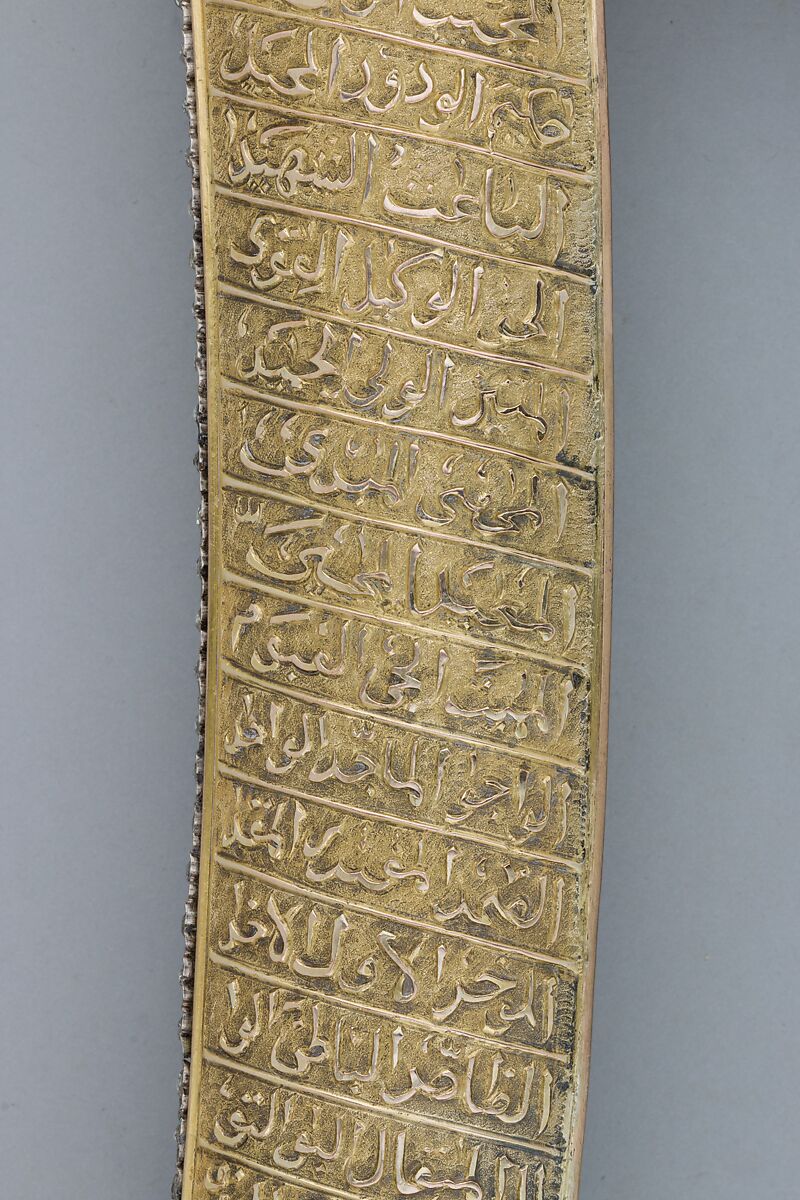 المجيب الو
حكيم الودود المجيد
الباعث الشهيد
الحق الوكيل القوى
المتين الولى الحميد
المحصى المبدئ
المعيد المحيى
المميت الحى القيوم
الواجد الماجد الواحد
الصمد القادر المقتد
الموخر الاول الاخر
الظاهر الباطن الوا
المتعال البر التو